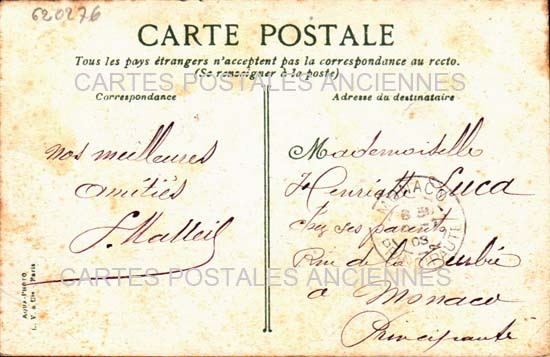 620276
CARTE POSTALE
Tous les pays étrangers n'acceptent pas la correspondance au recto.
(Se renseigner à la poste)
CARTES POSTALES ANCIENNES
Correspondance
Adresse du destinataire
nos meilleures
amitiés
Mademoiselle
Henriette Luca
chez ses parents
Rue de la Turbie
à Monaco
Principauté
MONACO
CARTES POSTALES ANCIENNES
Aqua-Photo
L. V. & Cie, Paris